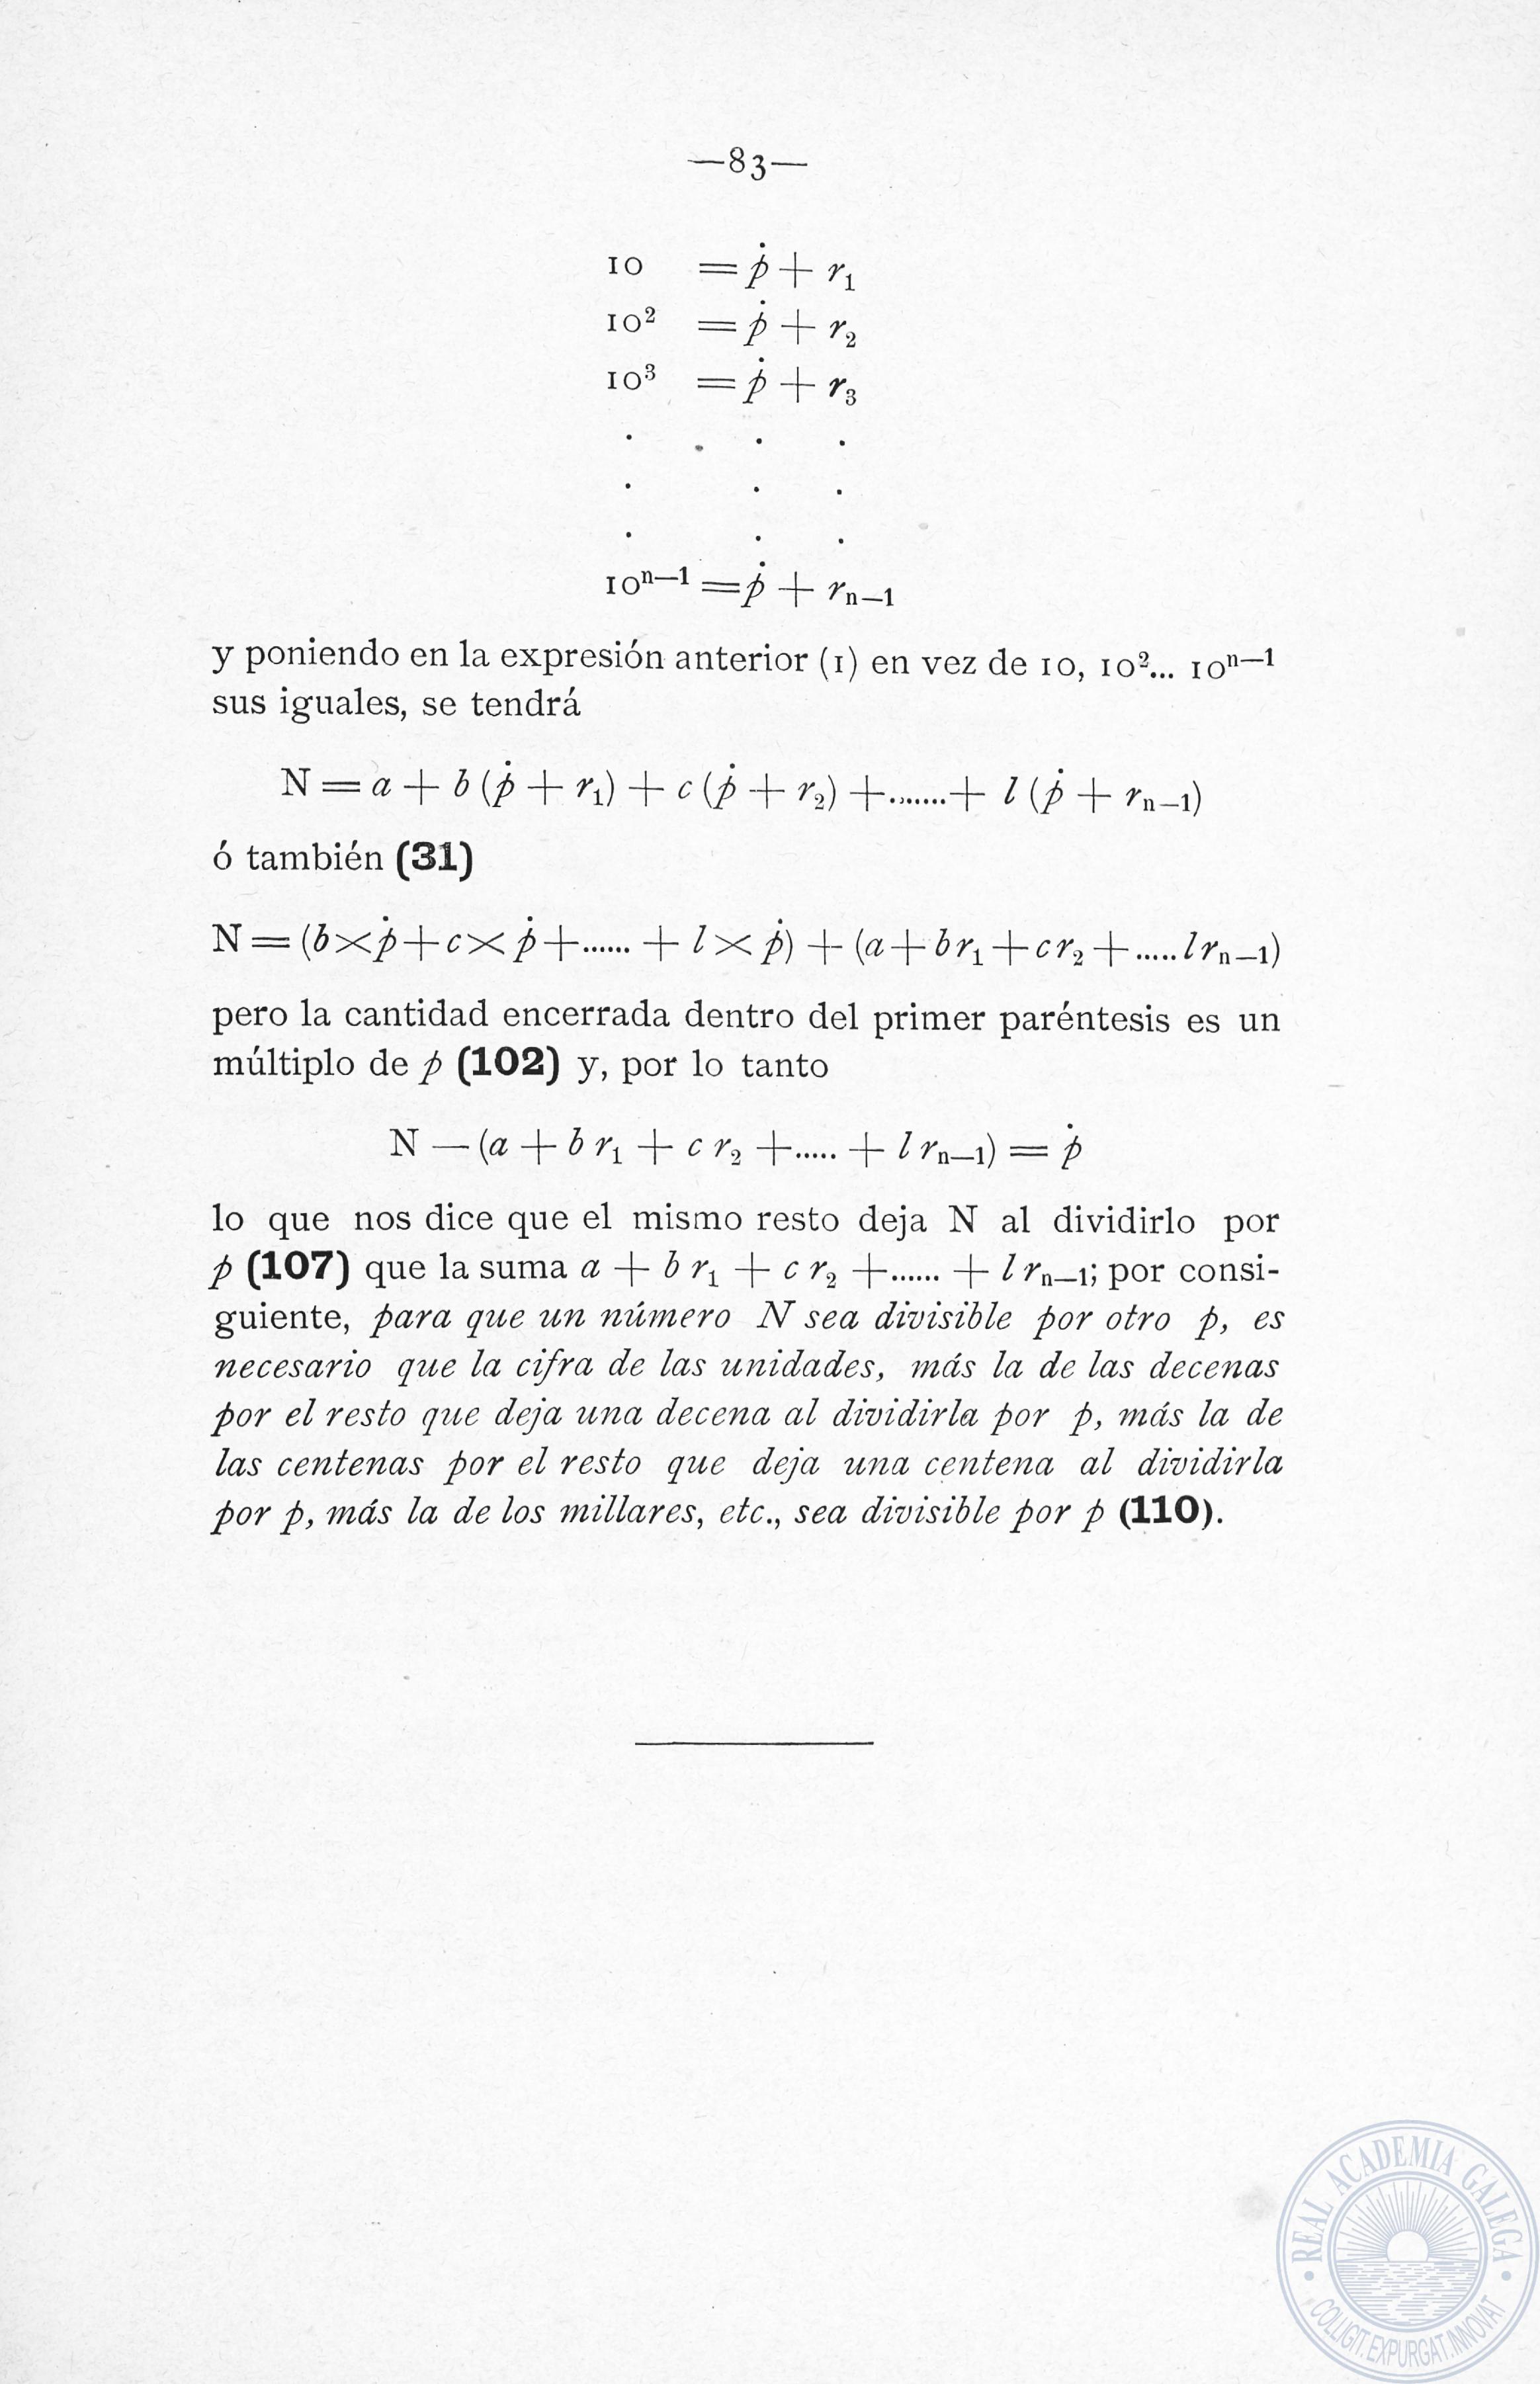 —83—
10 = ṗ + r₁
10² = ṗ + r₂
10³ = ṗ + r₃
. . .
. . .
. . .
10ⁿ⁻¹ = ṗ + rₙ₋₁
y poniendo en la expresión anterior (1) en vez de 10, 10²... 10ⁿ⁻¹
sus iguales, se tendrá
N = a + b (ṗ + r₁) + c (ṗ + r₂) +.......+ l (ṗ + rₙ₋₁)
ó también (31)
N = (b×ṗ+c×ṗ+...... + l×ṗ) + (a+br₁+cr₂+.....lrₙ₋₁)
pero la cantidad encerrada dentro del primer paréntesis es un
múltiplo de p (102) y, por lo tanto
N — (a + b r₁ + c r₂ +..... + l rₙ₋₁) = ṗ
lo que nos dice que el mismo resto deja N al dividirlo por
p (107) que la suma a + b r₁ + c r₂ +...... + l rₙ₋₁; por consi-
guiente, para que un número N sea divisible por otro p, es
necesario que la cifra de las unidades, más la de las decenas
por el resto que deja una decena al dividirla por p, más la de
las centenas por el resto que deja una centena al dividirla
por p, más la de los millares, etc., sea divisible por p (110).
REAL ACADEMIA GALEGA
COLLIGIT. EXPURGAT. INNOVAT